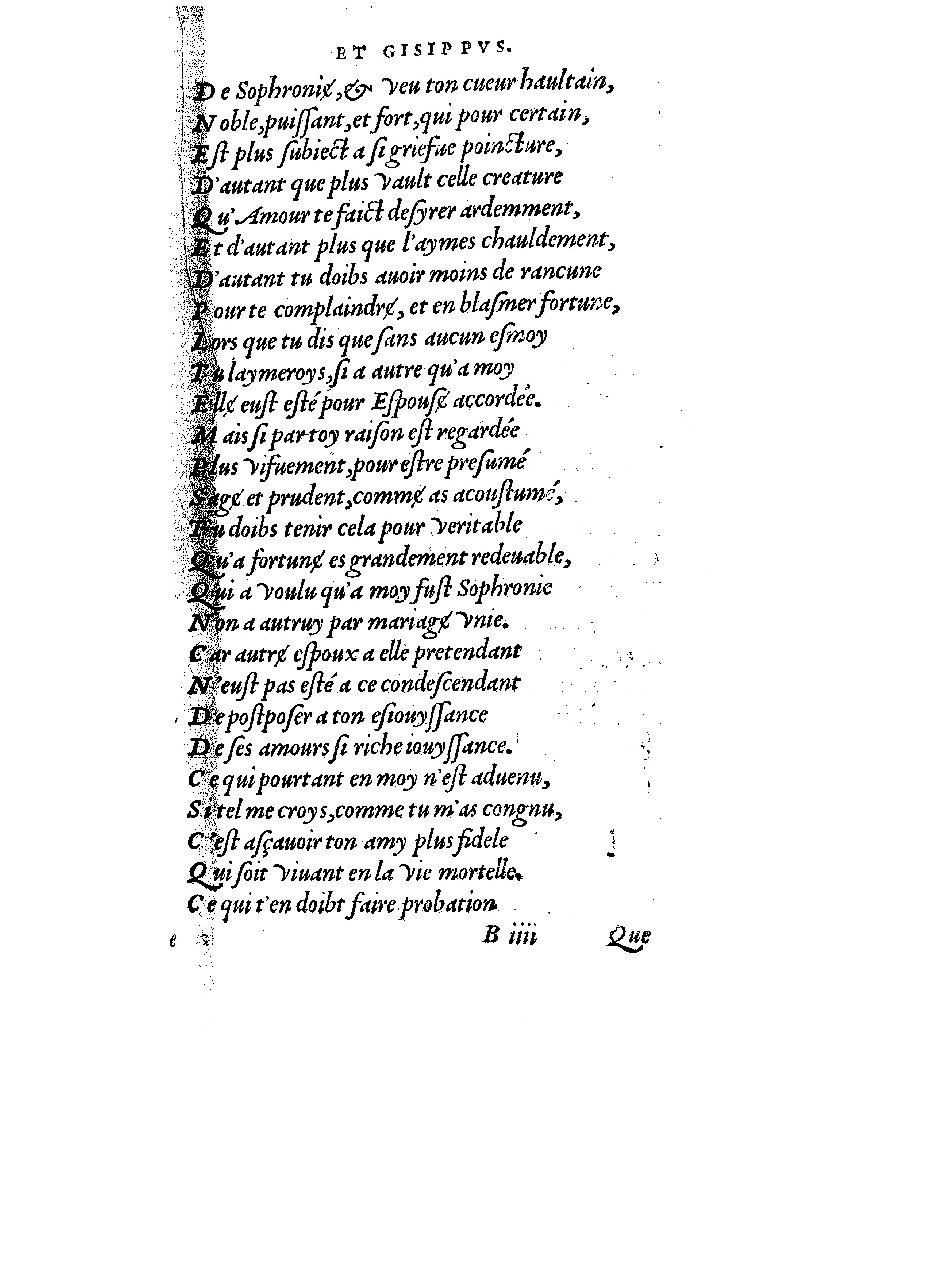 ET GISIPPVS.
De Sophroniɇ, & veu ton cueur haultain,
Noble, puiſſant, et fort, qui pour certain,
Eſt plus ſubiect a ſi griefue poincture,
D'autant que plus vault celle creature
Qu'Amour te faict deſyrer ardemment,
Et d'autant plus que l'aymes chauldement,
D'autant tu doibs auoir moins de rancune
Pour te complaindrɇ, et en blaſmer fortune,
Lors que tu dis que ſans aucun eſmoy
Tu laymeroys, ſi a autre qu'a moy
Ellɇ euſt eſté pour Eſpouſɇ accordée.
Mais ſi par toy raiſon eſt regardée
Plus vifuement, pour eſtre preſumé
Sagɇ et prudent, commɇ as acouſtumé,
Tu doibs tenir cela pour veritable
Qu'a fortunɇ es grandement redeuable,
Qui a voulu qu'a moy fuſt Sophronie
Non a autruy par mariagɇ vnie.
Car autrɇ eſpoux a elle pretendant
N'euſt pas eſté a ce condeſcendant
De poſtpoſer a ton eſiouyſſance
De ſes amours ſi riche iouyſſance.
Ce qui pourtant en moy n'eſt aduenu,
Si tel me croys, comme tu m'as congnu,
C'eſt aſçauoir ton amy plus fidele
Qui ſoit viuant en la vie mortelle.
Ce qui t'en doibt faire probation
B iiii Que